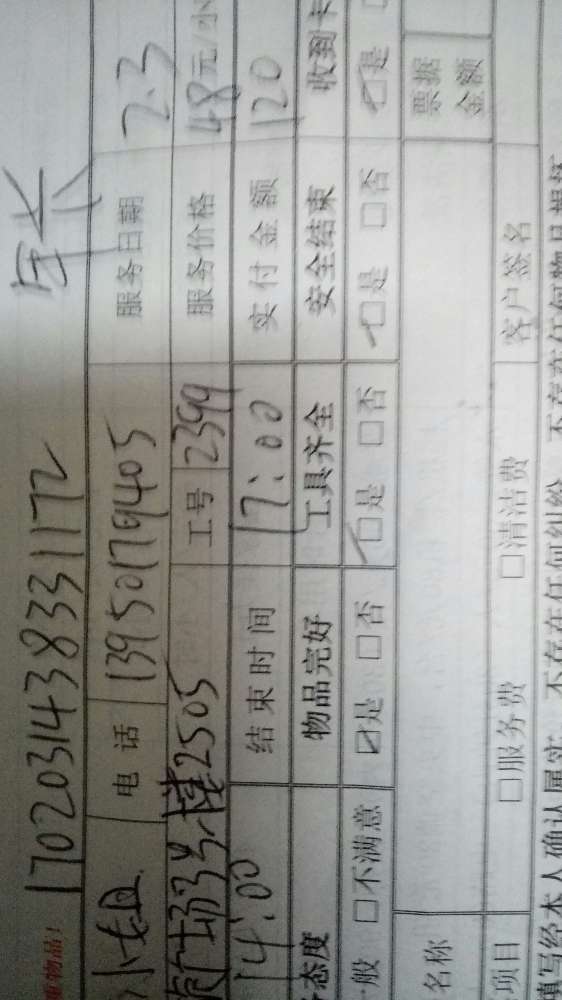 17020314383311172
小姐 电话 13950179405 服务日期 7.3
广场3号楼2505 工号 2399 服务价格 48元/小
14:00 结束时间 17:00 实付金额 120
态度 物品完好 工具齐全 安全结束 收到卡
般 □不满意 ☑是 □否 ☑是 □否 ☑是 □否 ☑是
名称 票据金额
项目 □服务费 □清洁费 客户签名
填写经本人确认属实，不存在任何纠纷，不存在任何物品损坏